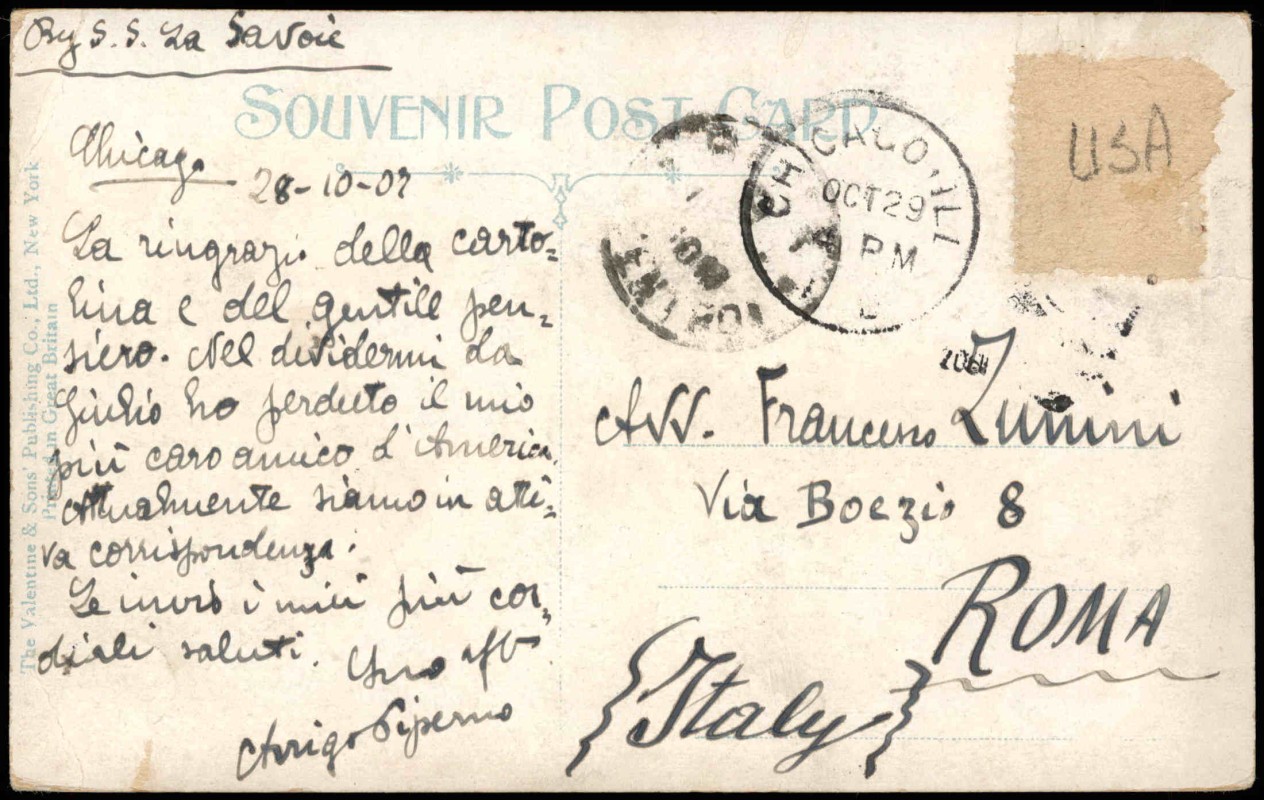 By S. S. La Savoie
SOUVENIR POST CARD
Chicago
28-10-07
La ringrazio della carto=
lina e del gentile pen=
siero. Nel dividermi da
Giulio ho perduto il mio
più caro amico d'America.
Attualmente siamo in atti=
va corrispondenza.
Le invio i miei più cor=
diali saluti.
Suo aff
Arrigo Piperno
The Valentine & Sons' Publishing Co., Ltd., New York
Printed in Great Britain
CHICAGO, ILL
OCT 29
PM
USA
Avv. Francesco Zunini
Via Boezio 8
ROMA
Italy